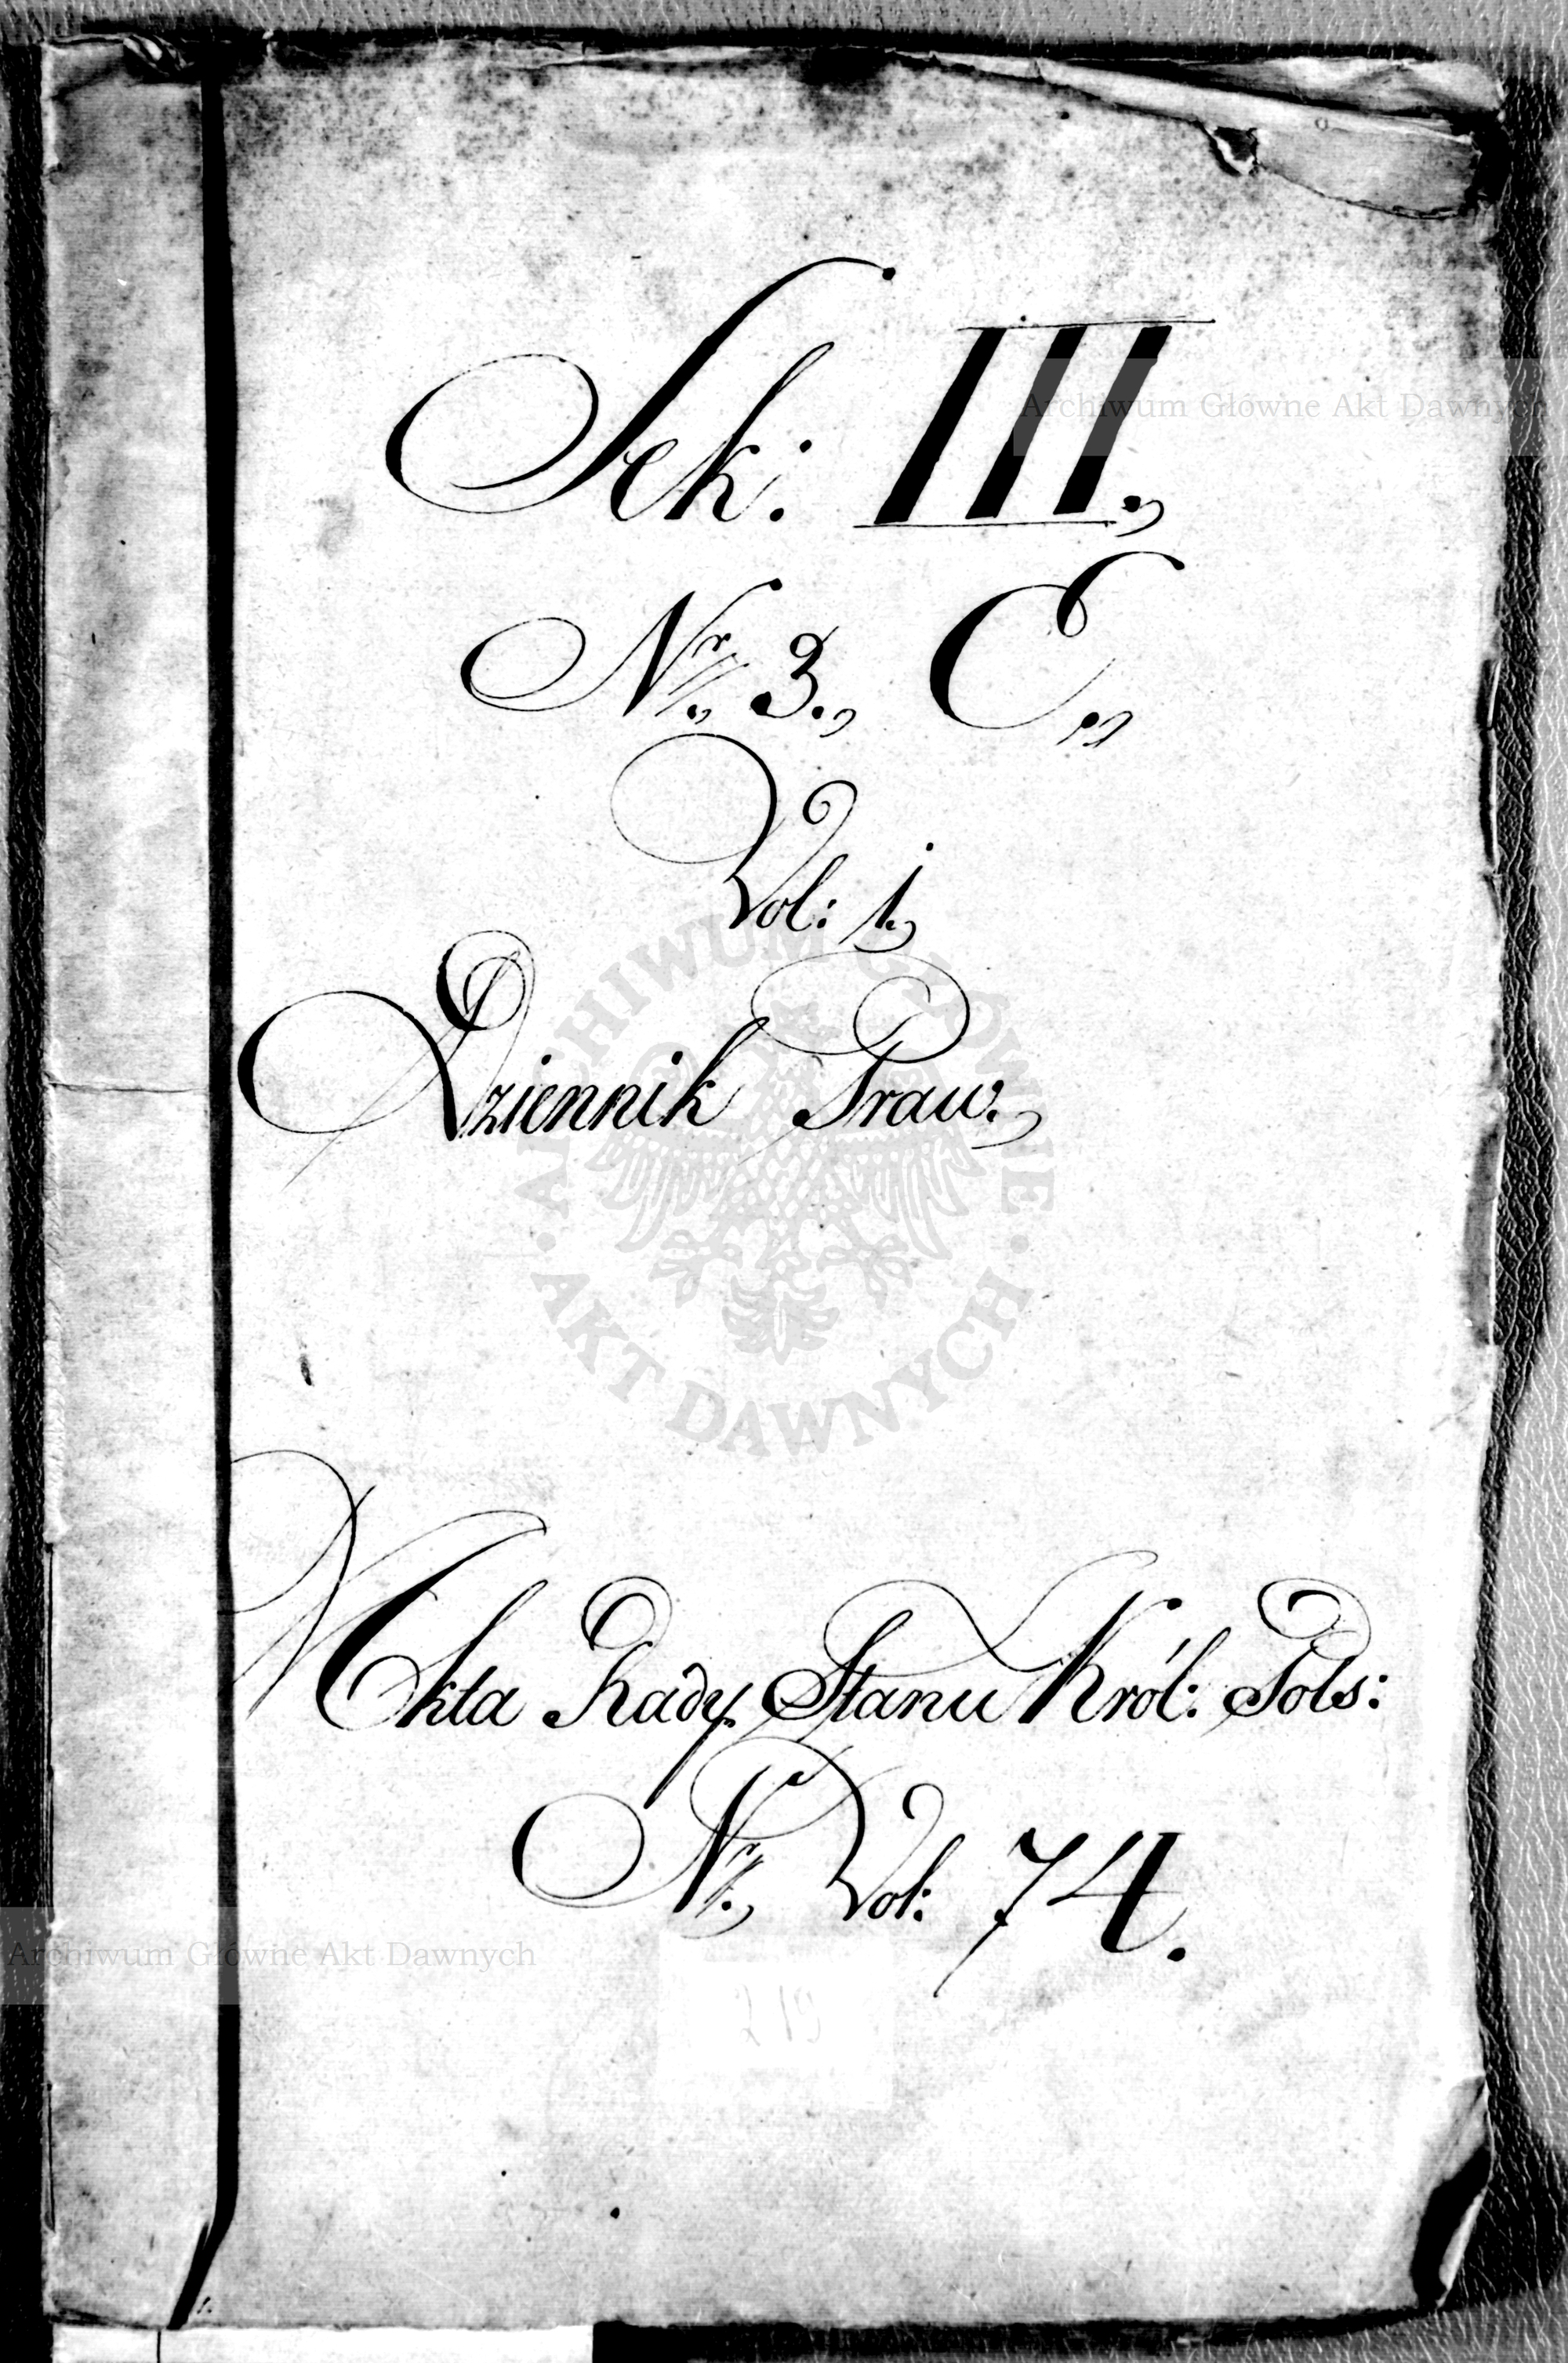 Sek: III.,
Nr., 3., C.,,
Vol: 1.,
Dziennik Praw.,
Akta Rady Stanu Król: Pols:
Nr., Vol: 74.
Archiwum Główne Akt Dawnych
ARCHIWUM GŁÓWNE
AKT DAWNYCH
Archiwum Główne Akt Dawnych